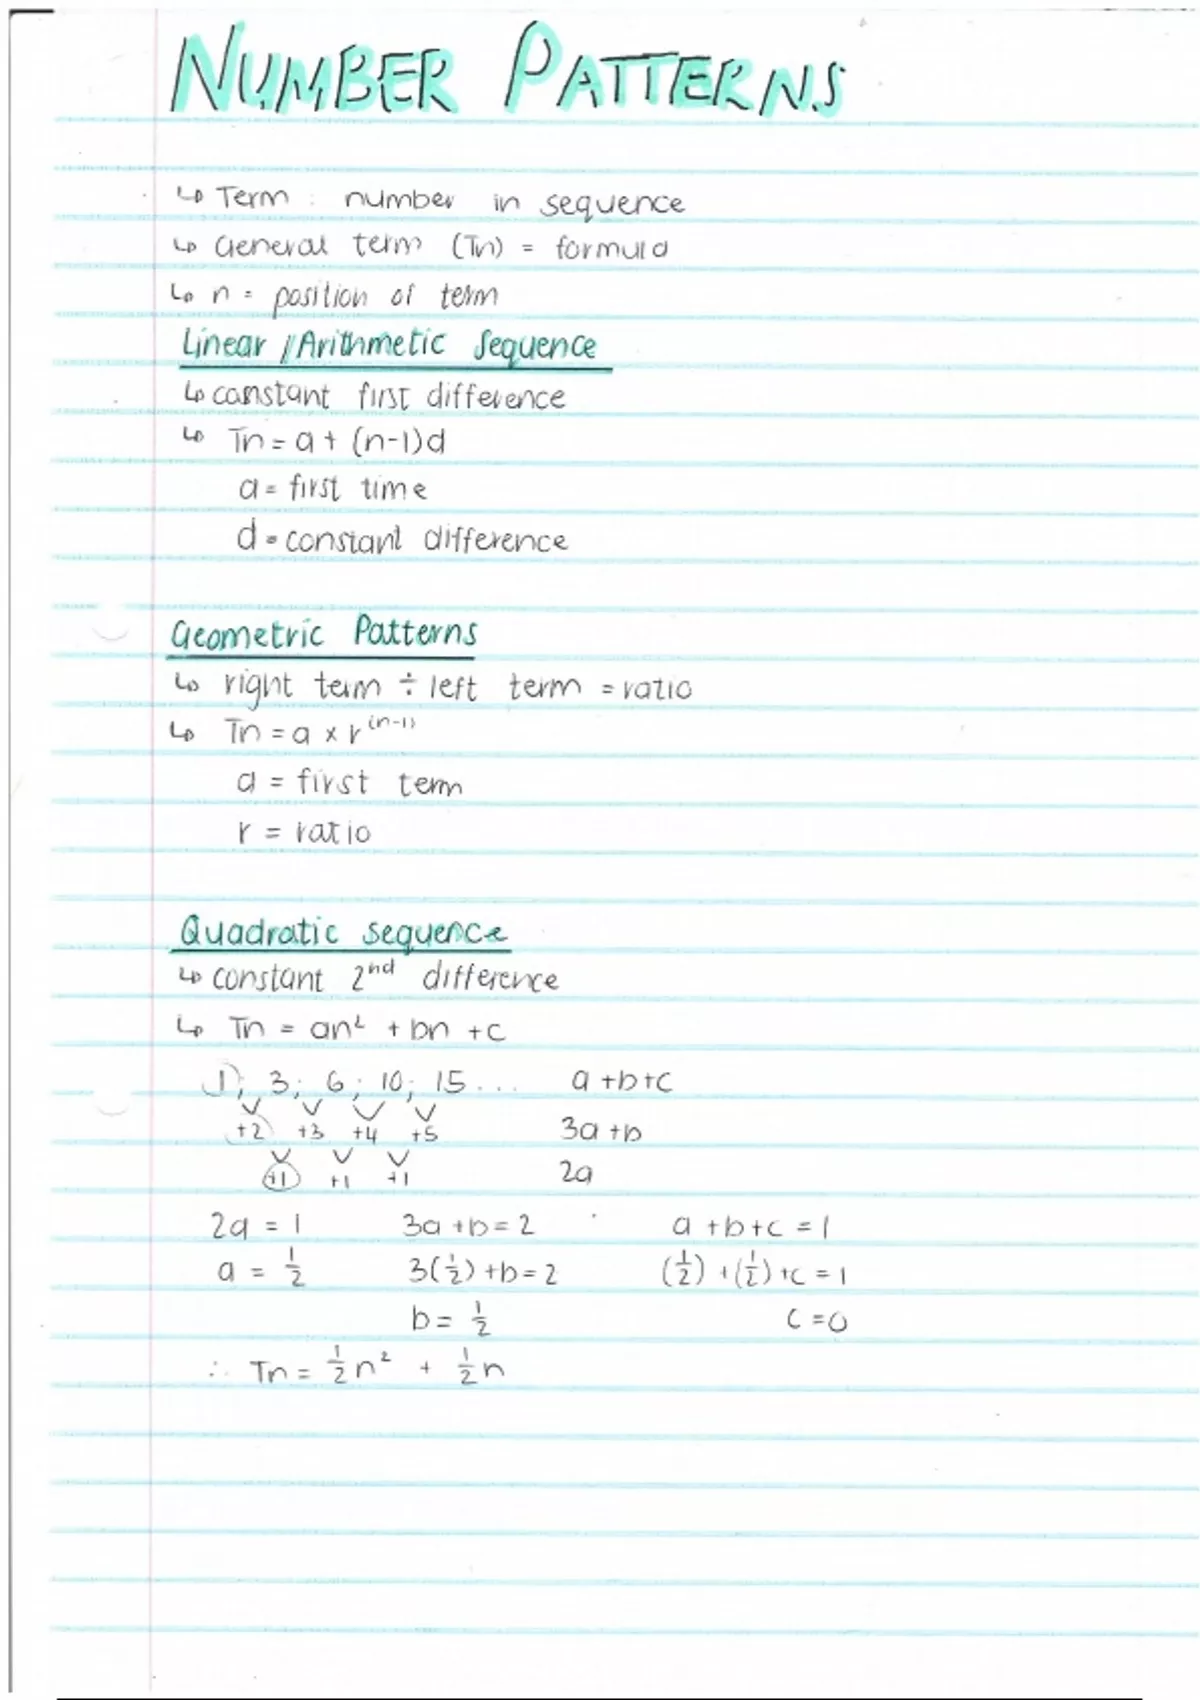 NUMBER PATTERNS
↳ Term : number in sequence
↳ General term (Tn) = formula
↳ n = position of term
Linear / Arithmetic Sequence
↳ constant first difference
↳ Tn = a + (n-1)d
a = first time
d = constant difference
Geometric Patterns
↳ right term ÷ left term = ratio
↳ Tn = a × r⁽ⁿ⁻¹⁾
a = first term
r = ratio
Quadratic sequence
↳ constant 2nd difference
↳ Tn = an² + bn + c
1; 3; 6; 10; 15... a + b + c
+2 +3 +4 +5 3a + b
+1 +1 +1 2a
2a = 1 3a + b = 2 a + b + c = 1
a = 1/2 3(1/2) + b = 2 (1/2) + (1/2) + c = 1
b = 1/2 c = 0
∴ Tn = 1/2 n² + 1/2 n